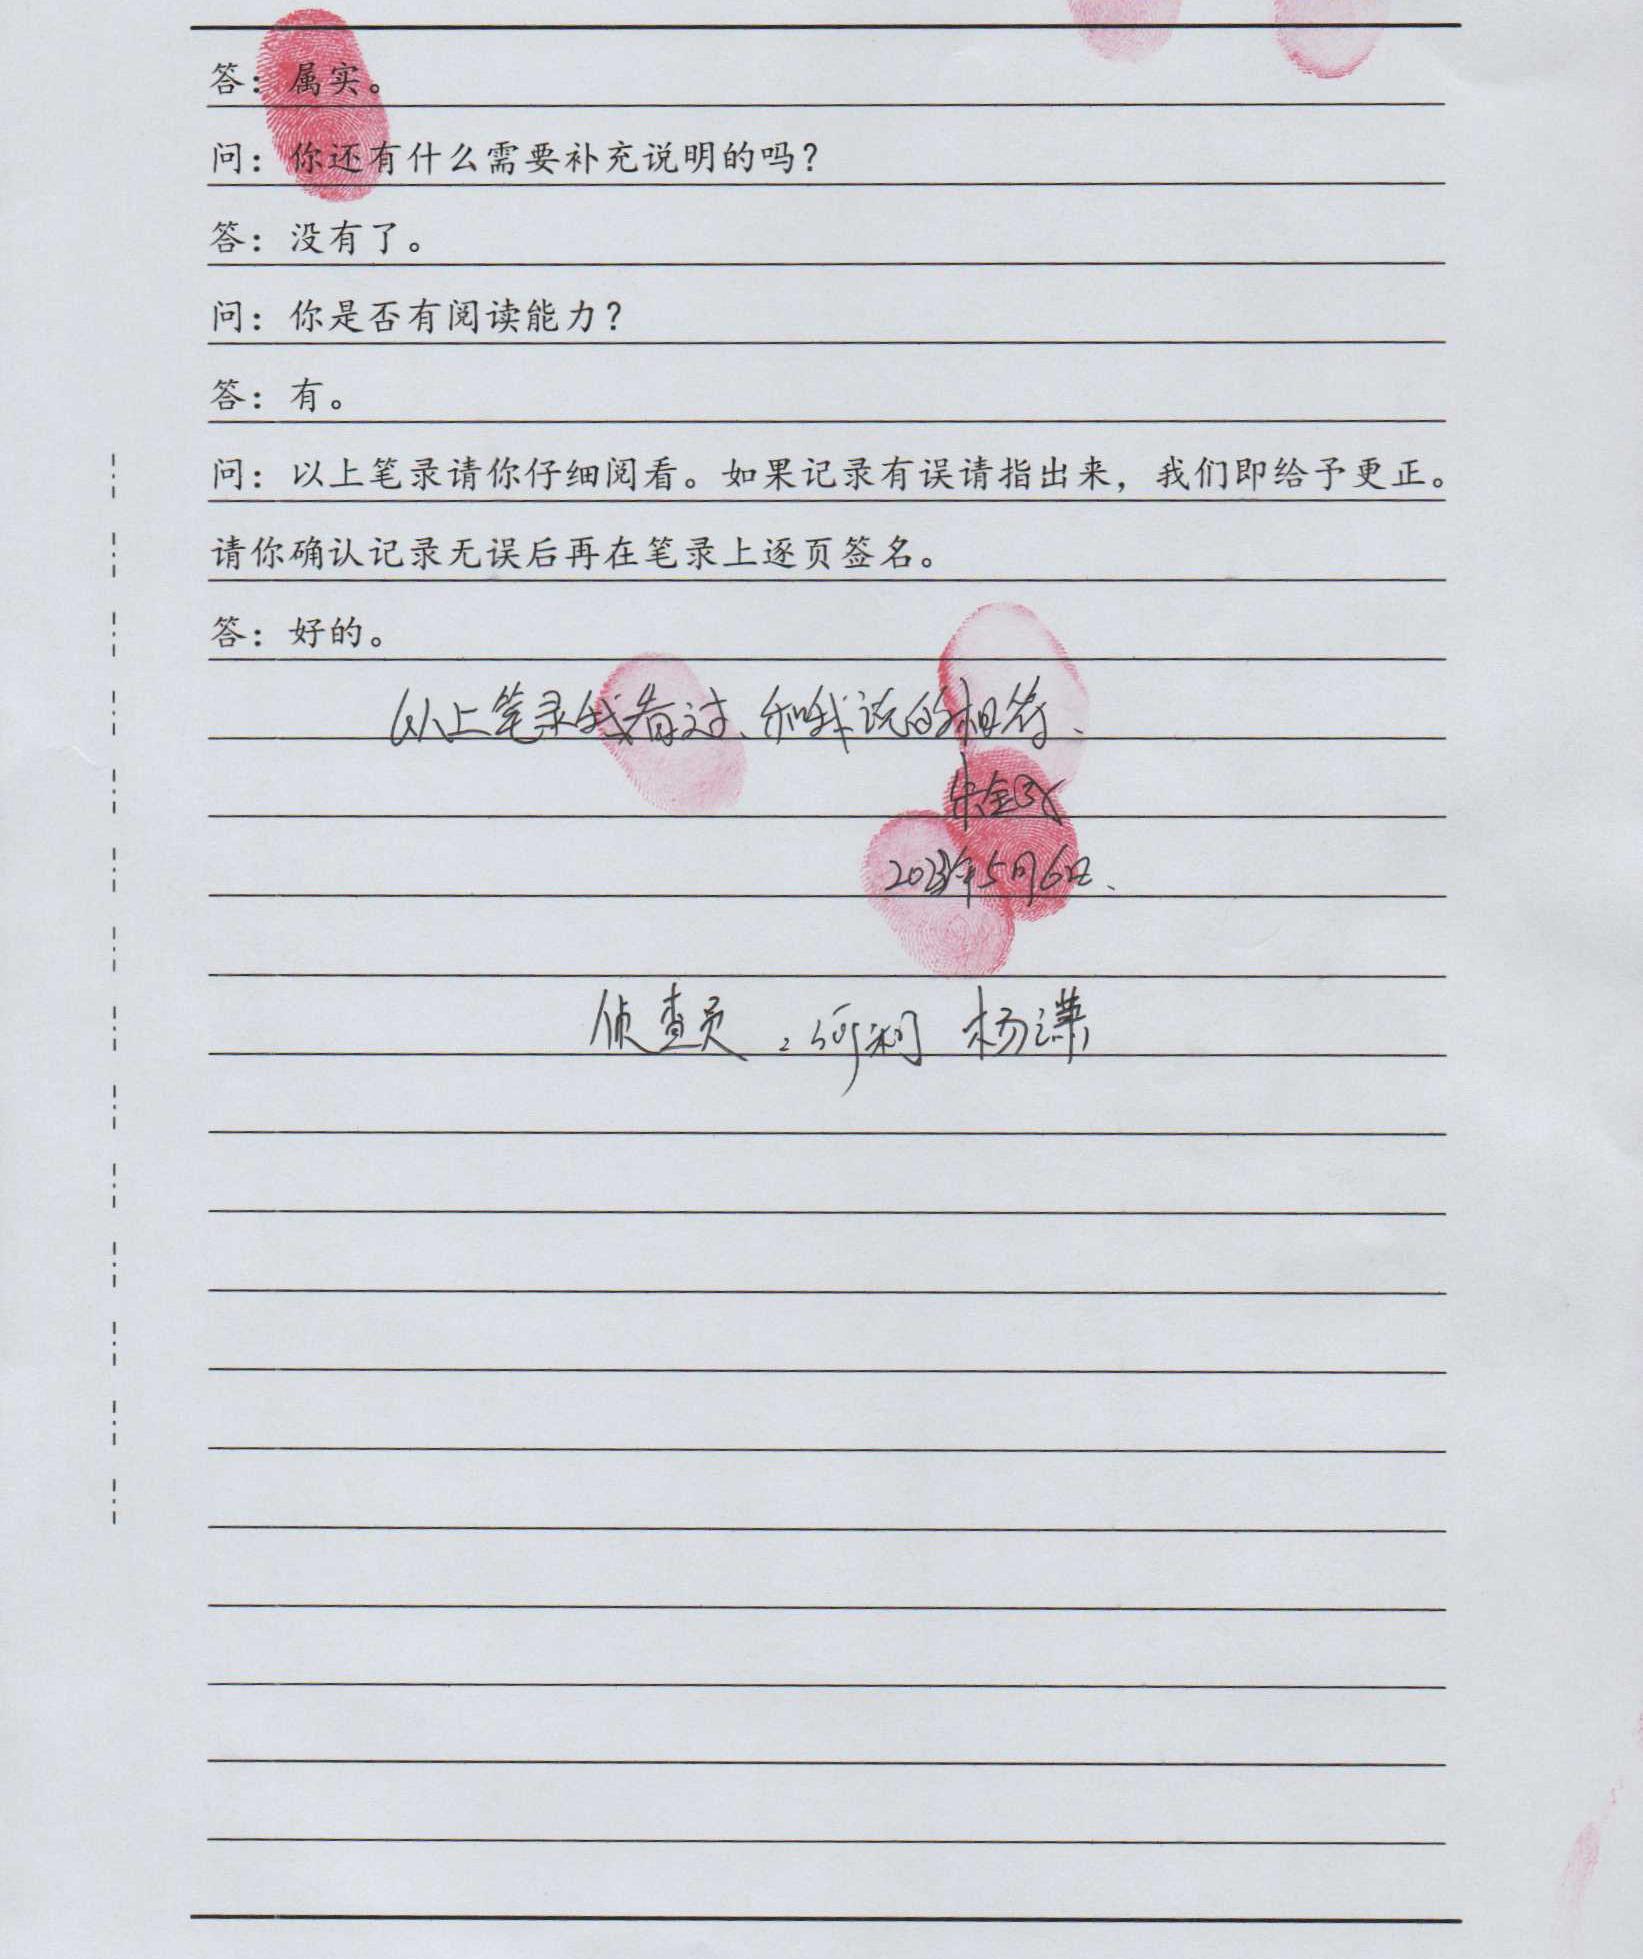 答：属实。
问：你还有什么需要补充说明的吗？
答：没有了。
问：你是否有阅读能力？
答：有。
问：以上笔录请你仔细阅看。如果记录有误请指出来，我们即给予更正。
请你确认记录无误后再在笔录上逐页签名。
答：好的。
以上笔录我看过、和我说的相符、
2023年5月6日、
侦查员：何利 杨潇